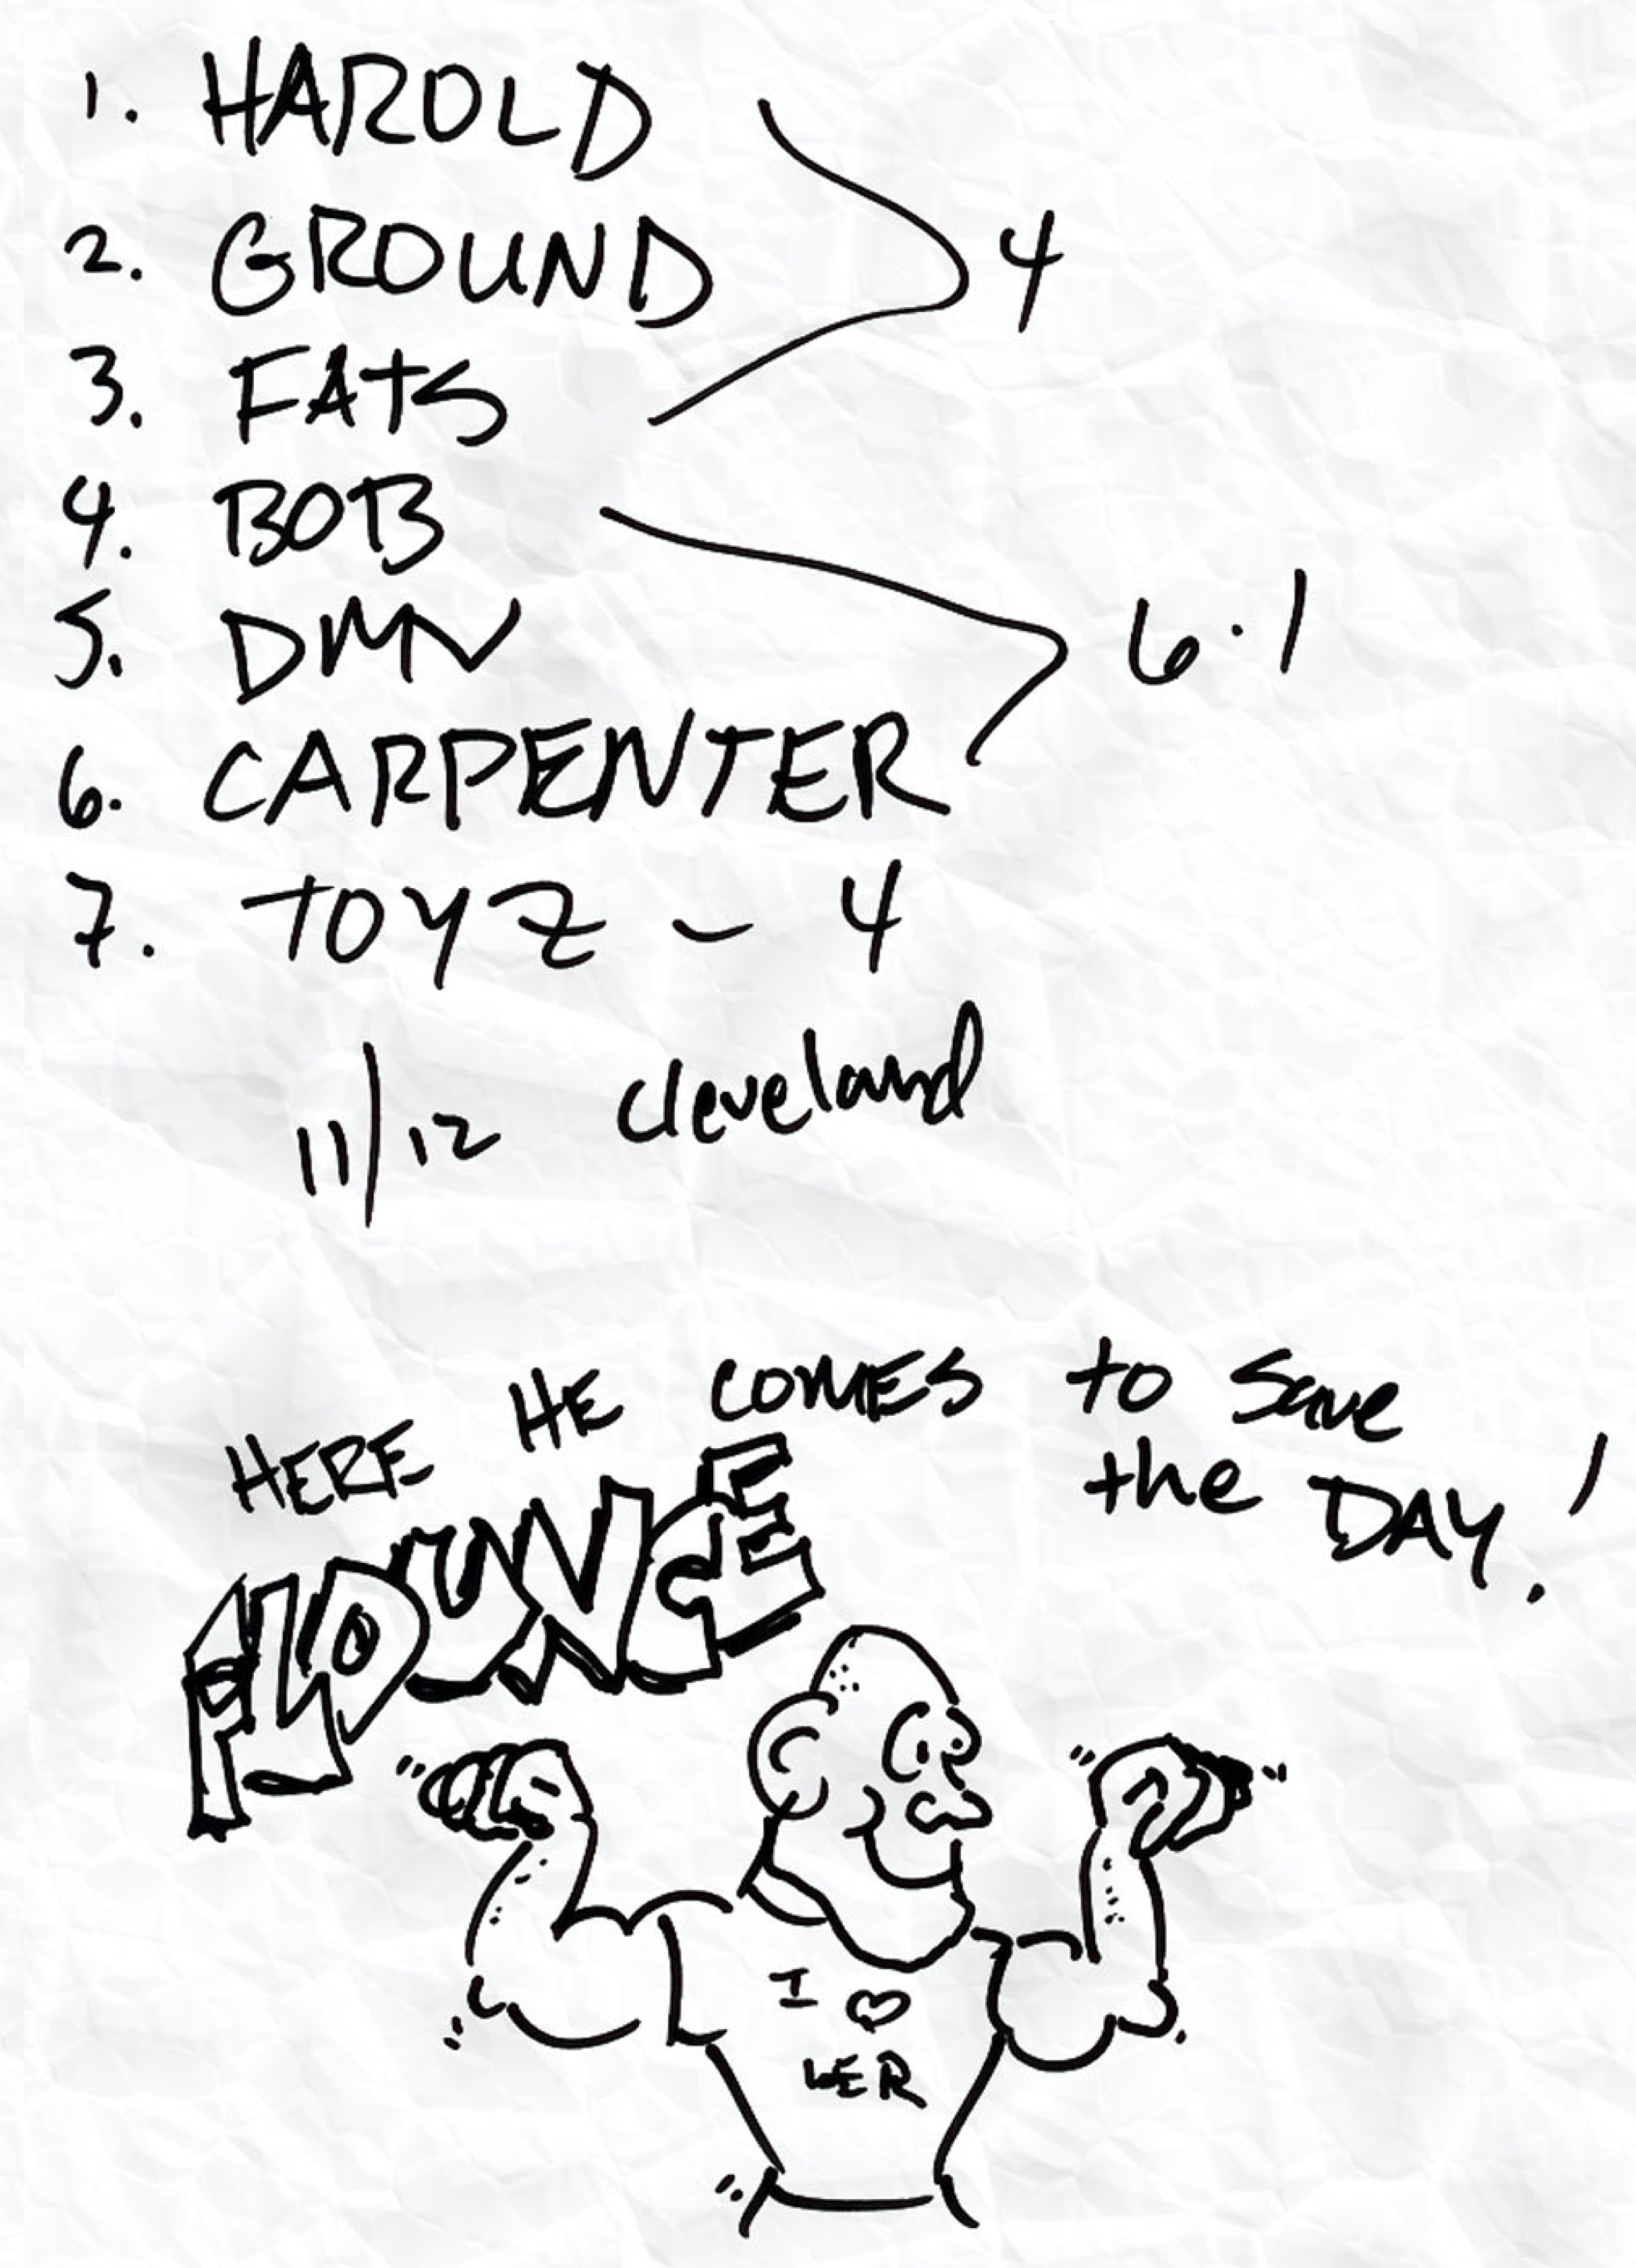 1. HAROLD
2. GROUND
4
3. FATS
4. BOB
5. DMV
6.1
6. CARPENTER
7. TOYZ - 4
11/12 cleveland
HERE HE COMES to Save
the DAY!
I ♡